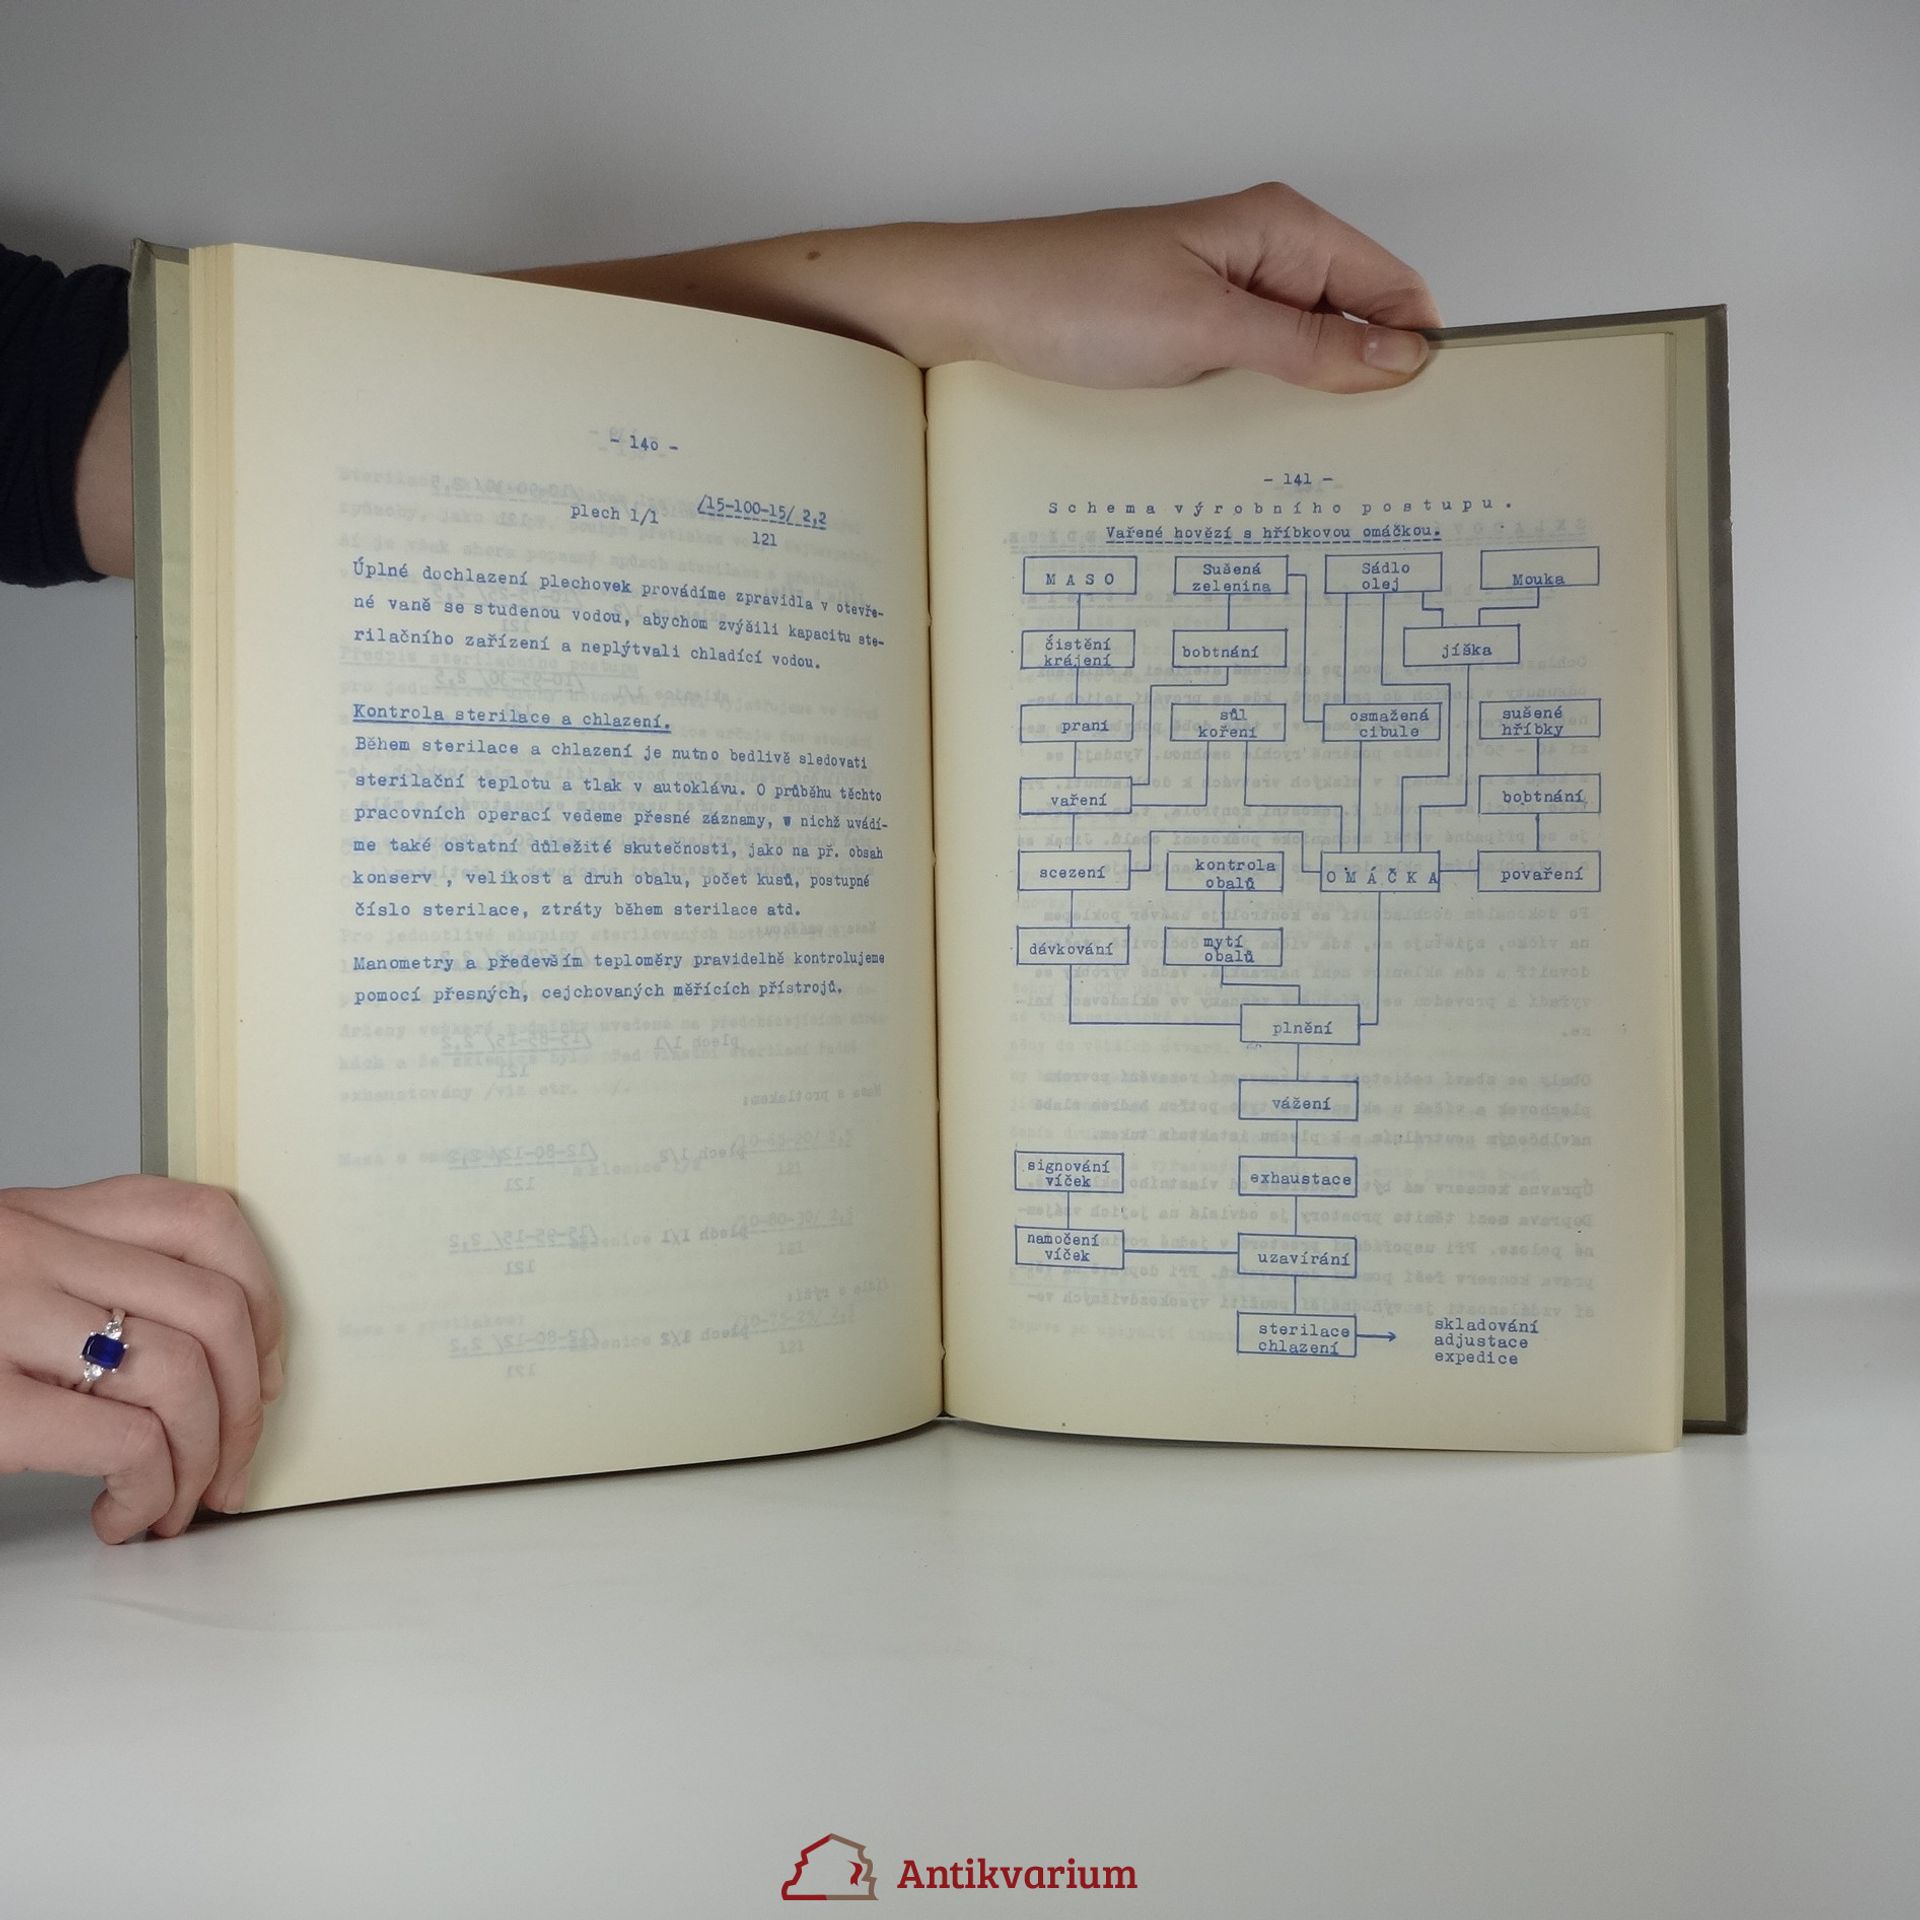 - 14o -
plech 1/1 /15-100-15/ 2,2
121
Úplné dochlazení plechovek provádíme zpravidla v otevře-
né vaně se studenou vodou, abychom zvýšili kapacitu ste-
rilačního zařízení a neplýtvali chladící vodou.
Kontrola sterilace a chlazení.
Během sterilace a chlazení je nutno bedlivě sledovati
sterilační teplotu a tlak v autoklávu. O průběhu těchto
pracovních operací vedeme přesné záznamy, v nichž uvádí-
me také ostatní důležité skutečnosti, jako na př. obsah
konserv , velikost a druh obalu, počet kusů, postupné
číslo sterilace, ztráty během sterilace atd.
Manometry a především teploměry pravidelně kontrolujeme
pomocí přesných, cejchovaných měřících přístrojů.
- 141 -
Schema výrobního postupu.
Vařené hovězí s hříbkovou omáčkou.
MASO
Sušená
zelenina
Sádlo
olej
Mouka
čistění
krájení
bobtnání
jíška
praní
sůl
koření
osmažená
cibule
sušené
hříbky
vaření
bobtnání
scezení
kontrola
obalů
OMÁČKA
povaření
dávkování
mytí
obalů
plnění
vážení
signování
víček
exhaustace
namočení
víček
uzavírání
sterilace
chlazení
skladování
adjustace
expedice
Antikvarium